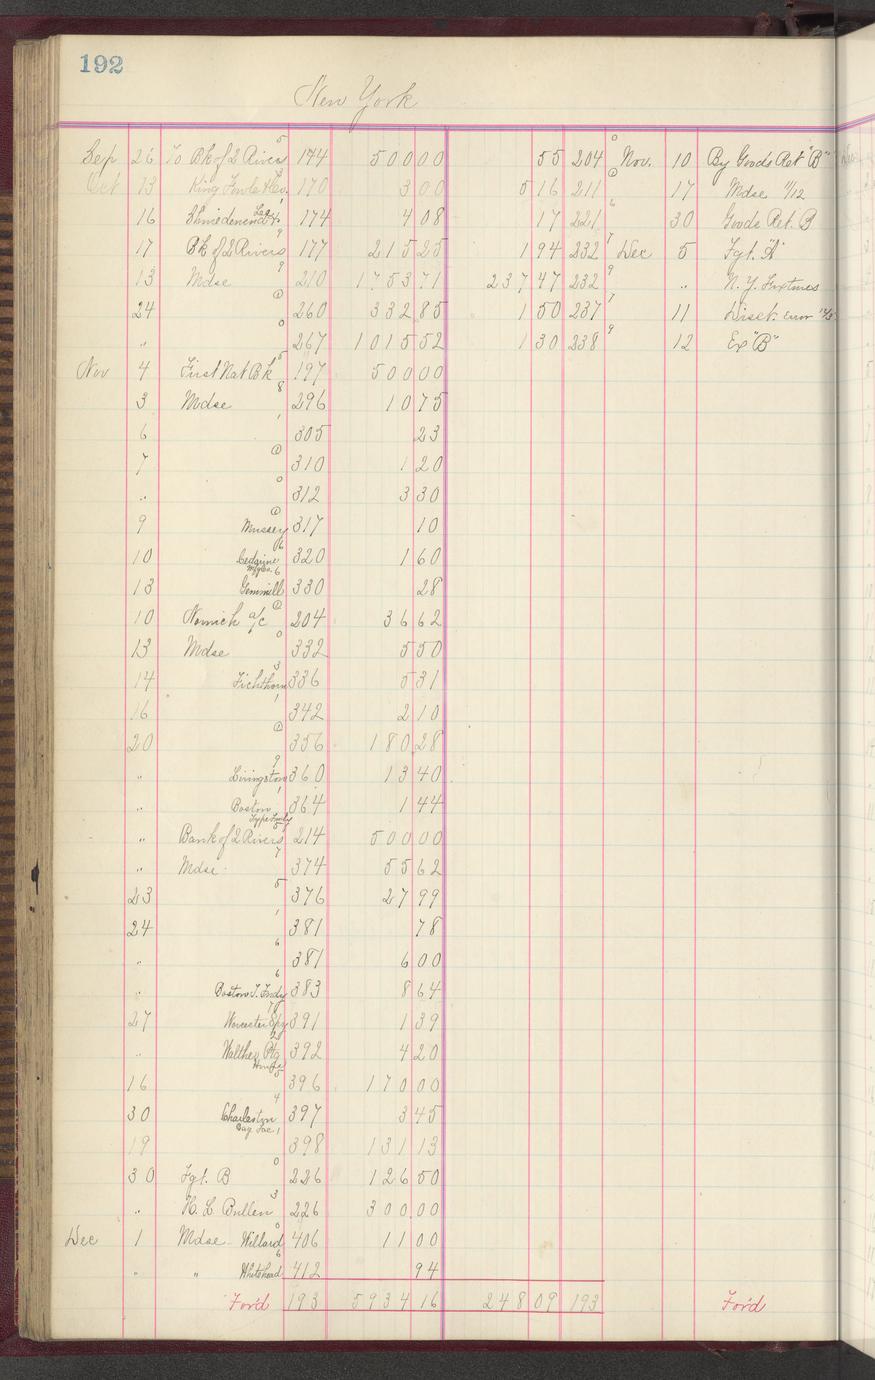 192
New York
Sep 26 To Bk of 2 Rivers 5 144 500 00 55 204 0 Nov. 10 By Goods Ret "B"
Oct 13 King Fowle & Co. 3 170 3 00 5 16 211 @ 17 Mdse 11/12
16 1 174 4 08 17 221 6 30 Goods Ret. B
17 Bk of 2 Rivers 9 177 215 25 1 94 232 7 Dec 5 Fgt. "A"
13 Mdse 9 210 1753 71 237 47 232 9 " N. Y. Fixtures
24 @ 260 332 85 1 50 237 7 11 Disct. Error
" 0 267 1015 52 1 30 238 9 12 Ex "B"
Nov 4 First Nat Bk 5 197 500 00
3 Mdse 8 296 10 75
6 1 305 23
7 @ 310 1 20
" 0 312 3 30
9 Mussey @ 317 10
10 Cedarine Mfg Co. 16 320 1 60
13 Gemmill 6 330 28
10 Nornich a/c @ 204 36 62
13 Mdse 0 332 5 50
14 Fichthorn 3 336 5 31
16 1 342 2 10
20 @ 356 180 28
" Livingston 9 360 13 40
" Boston Type Fndy 1 364 1 44
" Bank of 2 Rivers 5 214 500 00
" Mdse 7 374 55 62
23 5 376 27 99
24 1 381 78
" 6 381 6 00
" Boston T. Fndy 6 383 8 64
27 Worcester Spy 10 391 1 39
" Walther Ptg House 2 392 4 20
16 5 396 170 00
30 Charleston Bag Fac. 4 397 3 45
19 1 398 131 13
30 Fgt. B 0 226 126 50
" H. L. Bullen 3 226 300 00
Dec 1 Mdse - Willard 0 406 11 00
" " Whitehead 6 412 94
For'd 193 5934 16 248 09 193 For'd